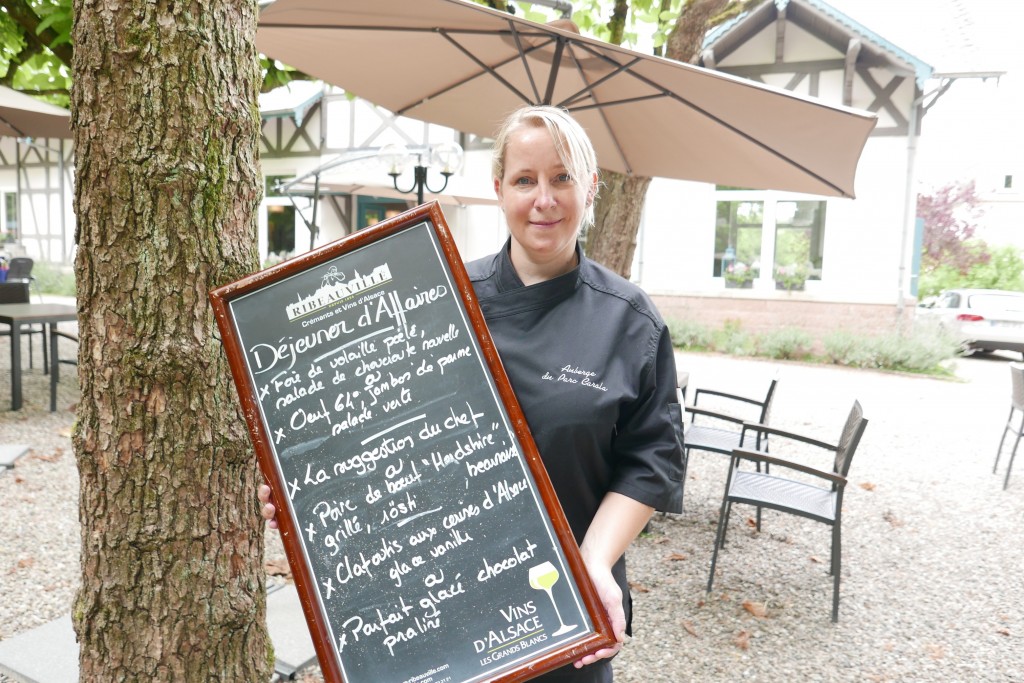 RIBEAUVILLÉ
Crémants et Vins d'Alsace
Déjeuner d'Affaires
x Foie de volaille poêlé,
salade de choucroute nouvelle
ou
x Oeuf 64° jambos de paume
salade verte
x La suggestion du chef
ou
x Poire de bœuf "Herdshire"
grillé, rösti, bearnaise
x Clafoutis aux cerises d'Alsace
glace vanille
ou
x Parfait glacé chocolat
praliné
VINS
D'ALSACE
LES GRANDS BLANCS
ribeauville.com
Auberge
du Parc Carola